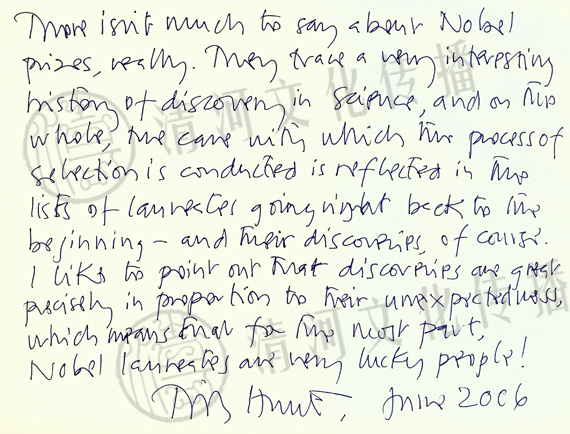 There isn't much to say about Nobel
prizes, really. They trace a very interesting
history of discovery in science, and on the
whole, the care with which the process of
selection is conducted is reflected in the
lists of laureates going right back to the
beginning – and their discoveries, of course.
I like to point out that discoveries are great
precisely in proportion to their unexpectedness,
which means that for the most part,
Nobel laureates are very lucky people!
Tim Hunt, June 2006
清河文化传播
清河文化传播